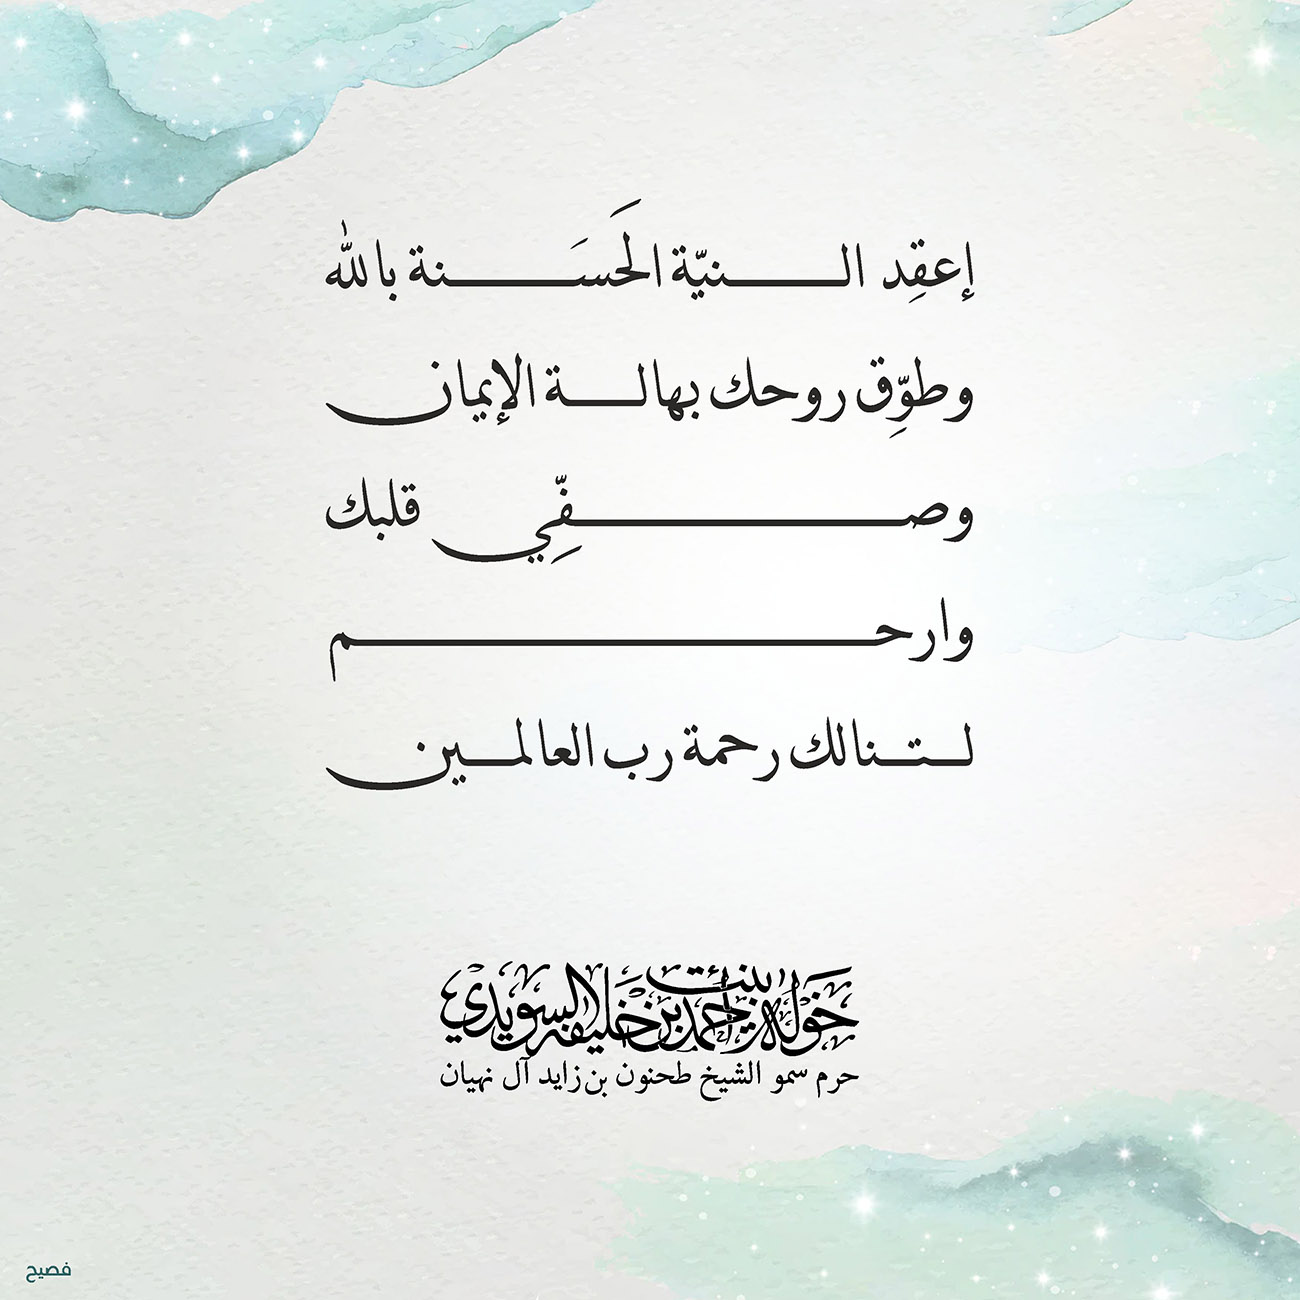 إعقِد النيّة الَحسَنة بالله
وطوِّق روحك بهالة الإيمان
وصفِّي قلبك
وارحم
لتنالك رحمة رب العالمين
خوله بنت احمد بن خليفه السويدي
حرم سمو الشيخ طحنون بن زايد آل نهيان
فصيح